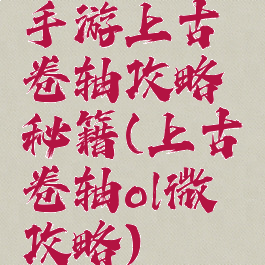 手游上古
卷轴攻略
秘籍(上古
卷轴ol微
攻略)